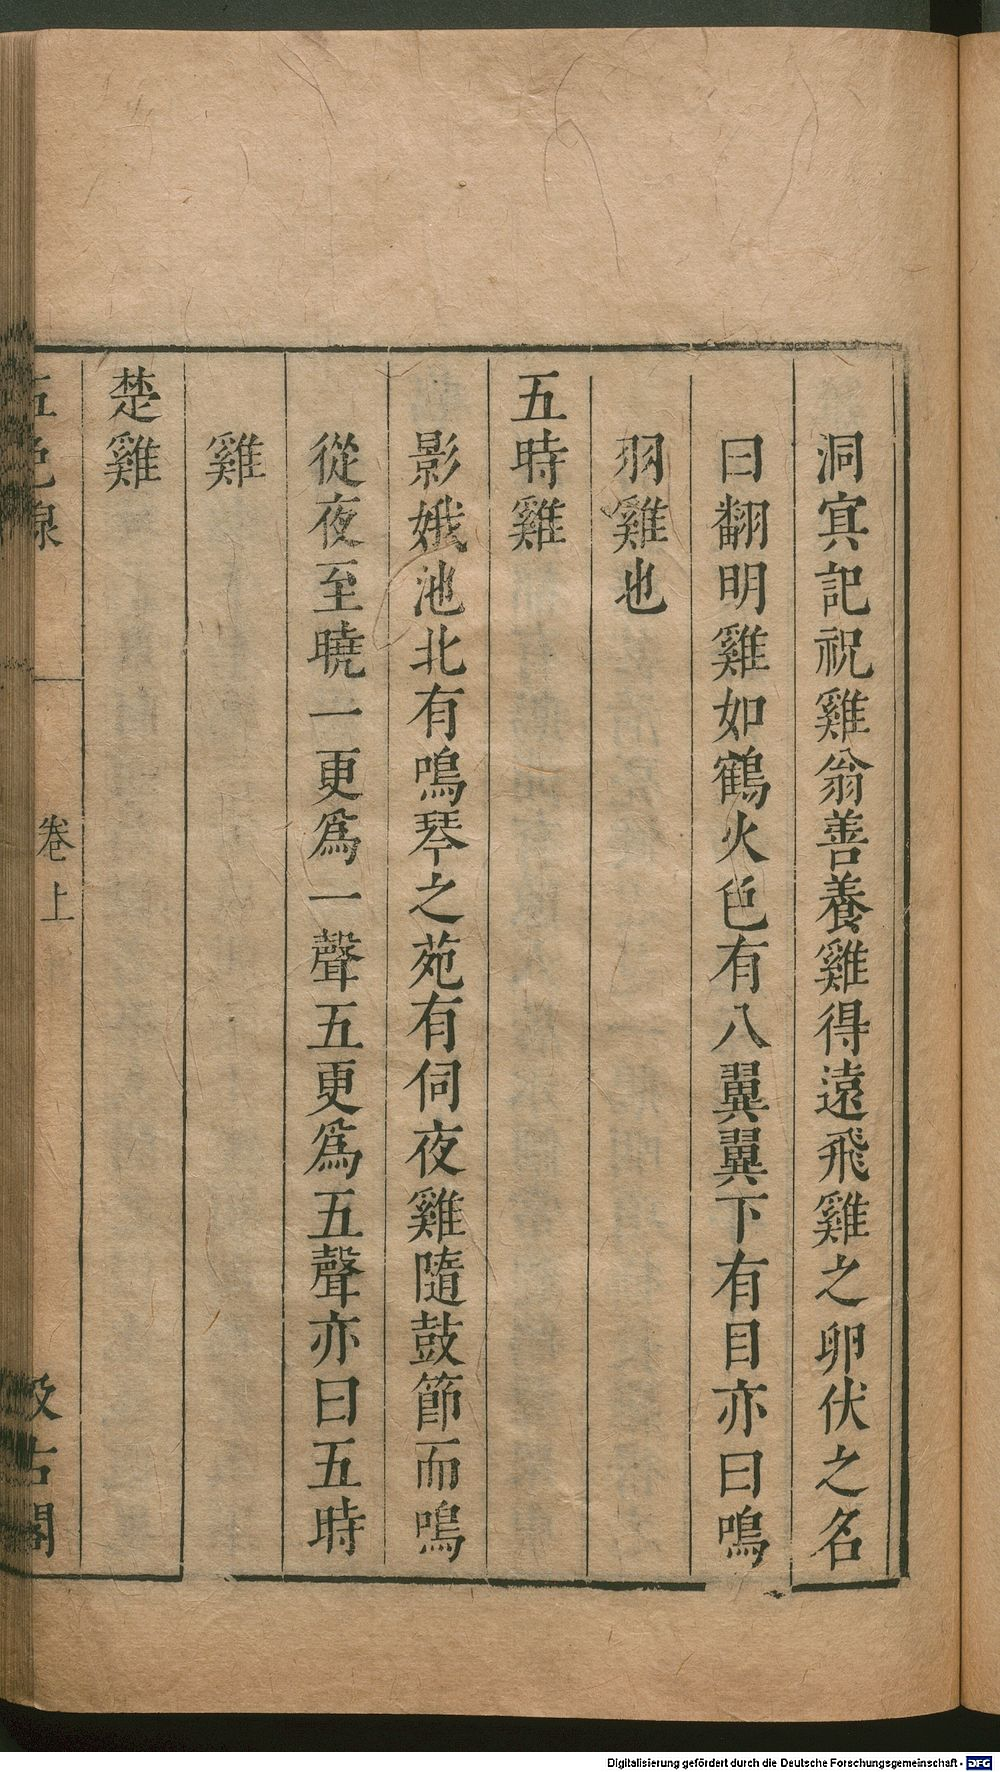 洞冥記祝雞翁善養雞得遠飛雞之卵伏之名
曰翻明雞如鶴火色有八翼翼下有目亦曰鳴
羽雞也
五時雞
影娥池北有鳴琴之苑有伺夜雞隨鼓節而鳴
從夜至曉一更爲一聲五更爲五聲亦曰五時
雞
楚雞
五色線
卷上
汲古閣
Digitalisierung gefördert durch die Deutsche Forschungsgemeinschaft - DFG